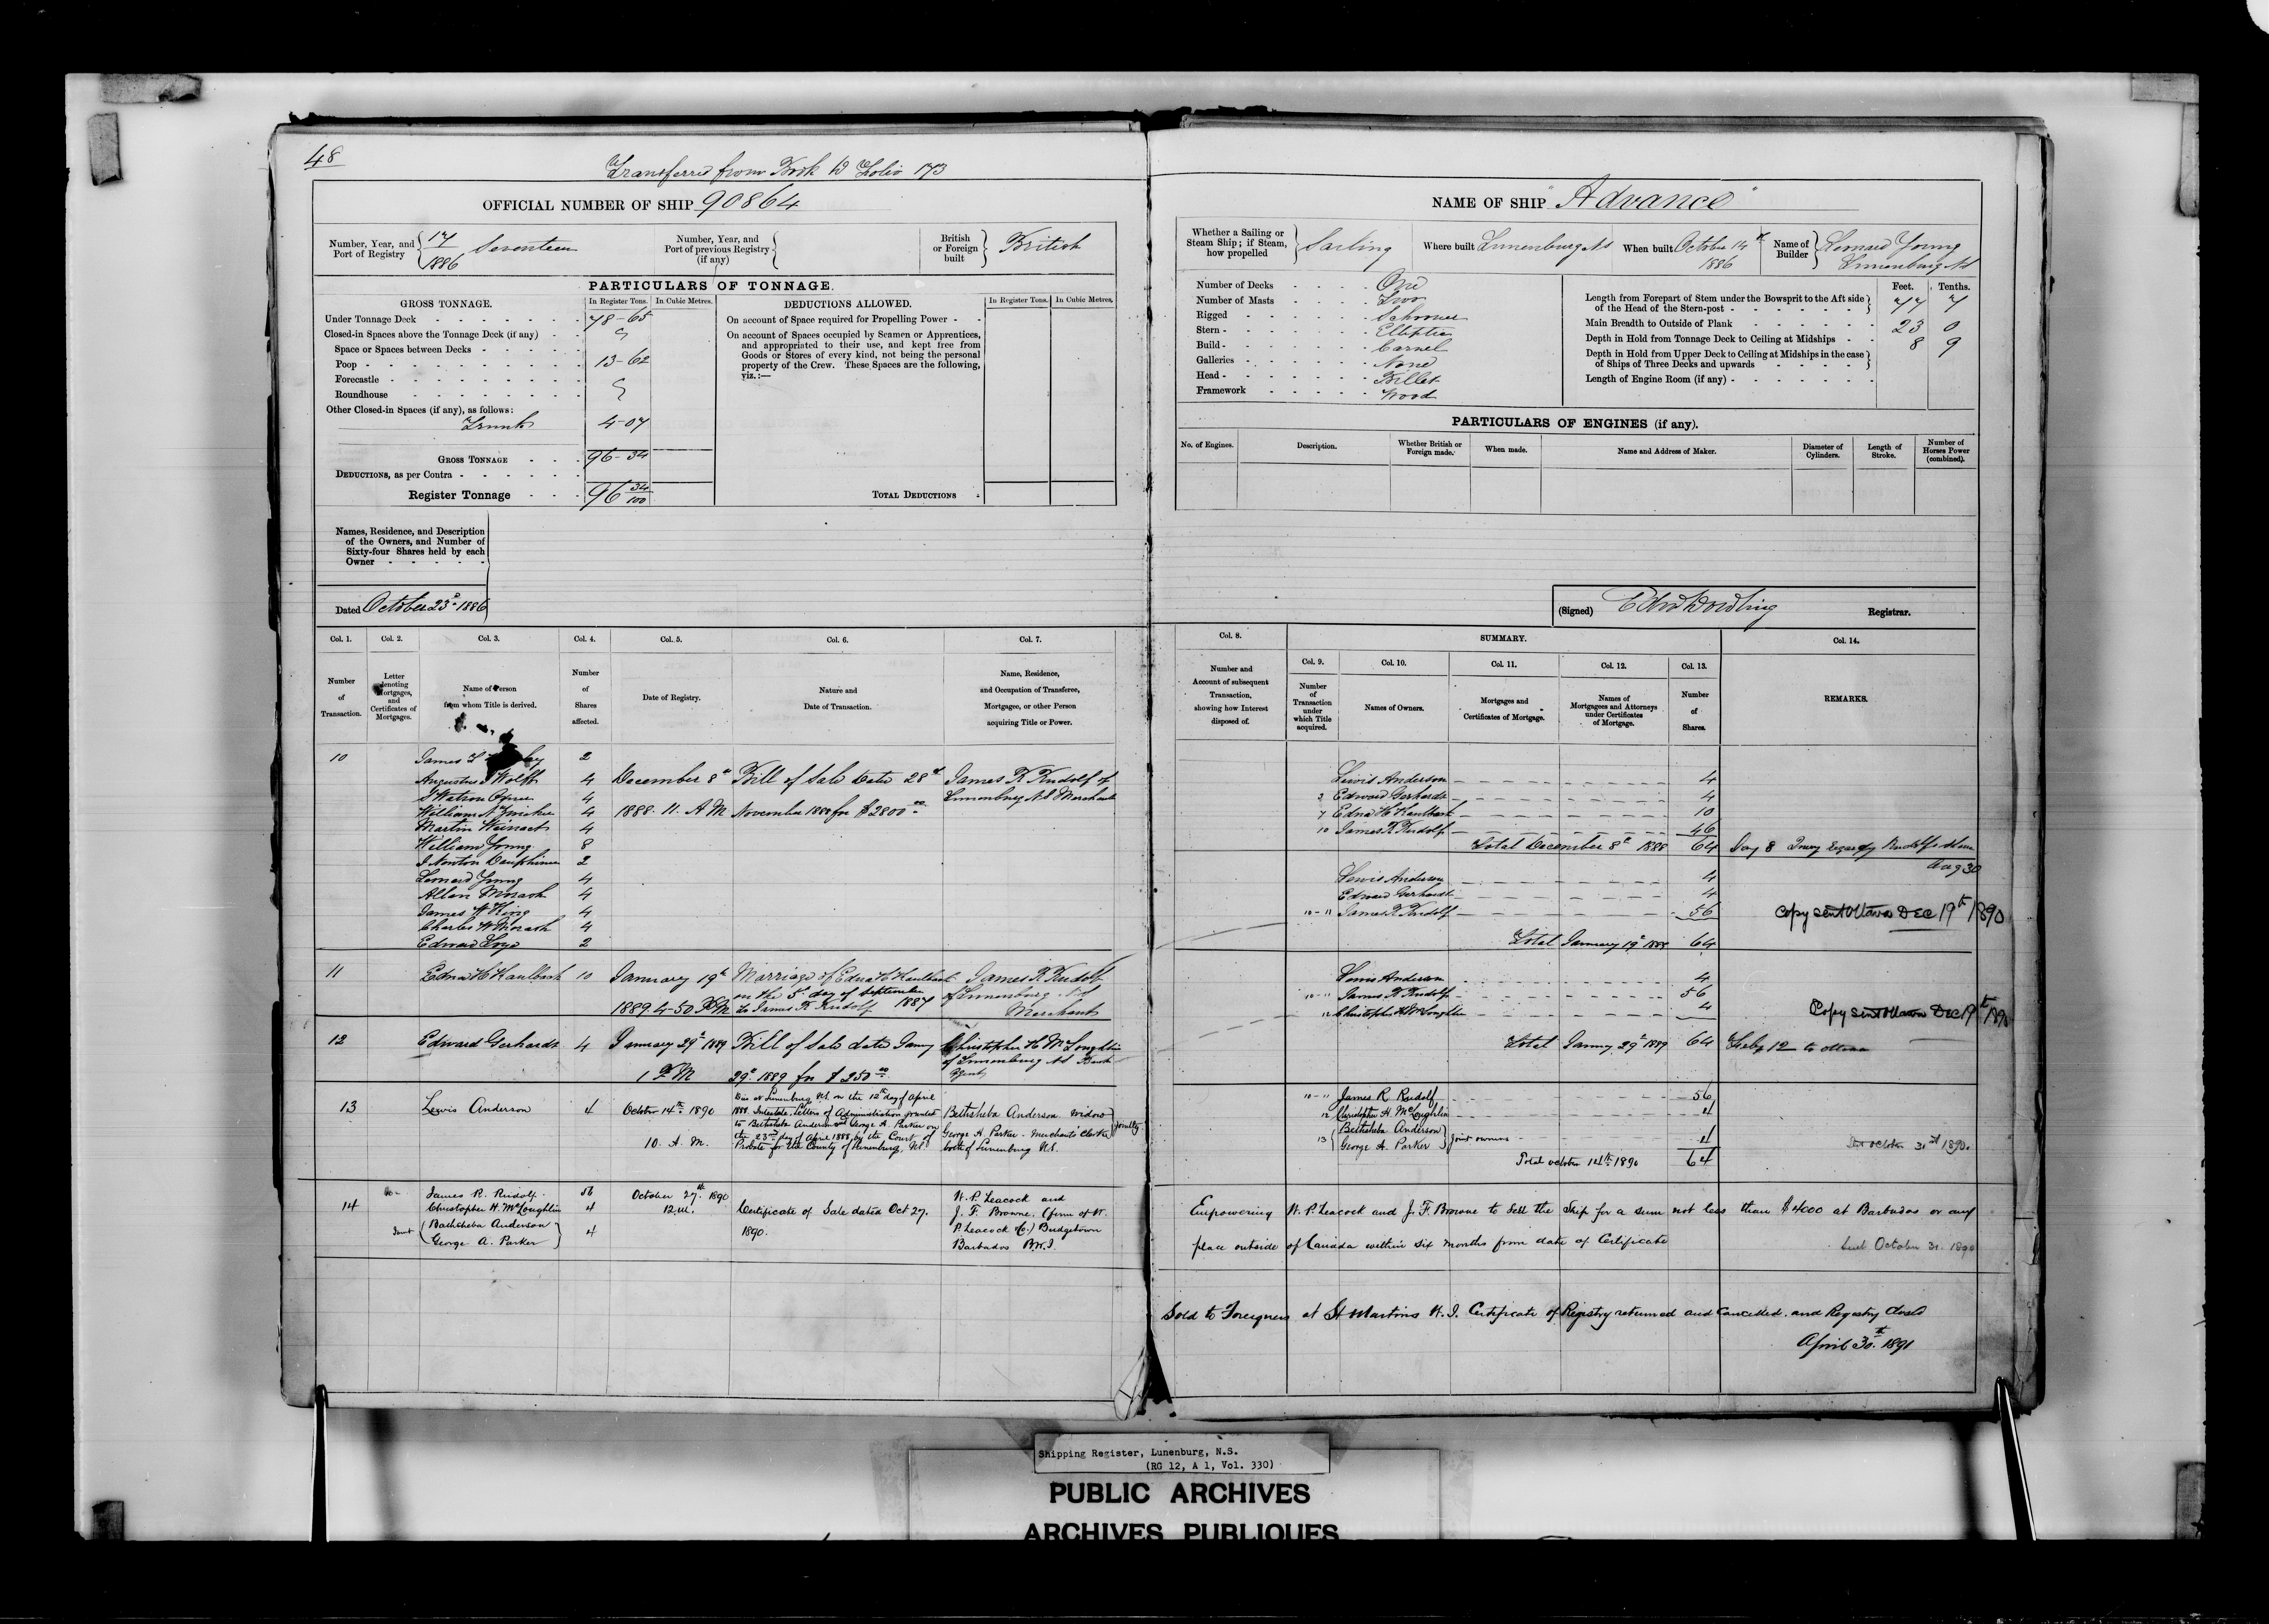 48
Transferred from Book D Folio 173
OFFICIAL NUMBER OF SHIP 90864
Number, Year, and Port of Registry { 17/1886 Seventeen
Number, Year, and Port of previous Registry (if any) {
British or Foreign built } British
PARTICULARS OF TONNAGE.
GROSS TONNAGE. In Register Tons. In Cubic Metres.
Under Tonnage Deck 78-65
Closed-in Spaces above the Tonnage Deck (if any)
Space or Spaces between Decks
Poop 13-62
Forecastle
Roundhouse
Other Closed-in Spaces (if any), as follows:
Trunk 4-07
GROSS TONNAGE 96-34
DEDUCTIONS, as per Contra
Register Tonnage 96 34/100
DEDUCTIONS ALLOWED. In Register Tons. In Cubic Metres.
On account of Space required for Propelling Power
On account of Spaces occupied by Seamen or Apprentices,
and appropriated to their use, and kept free from
Goods or Stores of every kind, not being the personal
property of the Crew. These Spaces are the following,
viz.:—
TOTAL DEDUCTIONS
Names, Residence, and Description
of the Owners, and Number of
Sixty-four Shares held by each
Owner
Dated October 23d 1886
Col. 1. Col. 2. Col. 3. Col. 4. Col. 5. Col. 6. Col. 7.
Number of Transaction.
Letter denoting Mortgages, and Certificates of Mortgages.
Name of Person from whom Title is derived.
Number of Shares affected.
Date of Registry.
Nature and Date of Transaction.
Name, Residence, and Occupation of Transferee, Mortgagee, or other Person acquiring Title or Power.
10 James 2
Augustus J Wolff 4 December 8th Bill of Sale date 28th James R Rudolf of
S Watson Oxner 4 Lunenburg NS Merchant
William N Zwicker 4 1888. 11. A M November 1888 for $2800.00
Martin Weinacht 4
William Young 8
J Newton Dauphinee 2
Leonard Young 4
Allan Morash 4
James W King 4
Charles W Morash 4
Edward 2
11 Edna H Kaulbach 10 January 19th Marriage of Edna H Kaulbach James R Rudolf
on the 5th day of September of Lunenburg NS
1889. 4-50 PM to James R Rudolf 1887 Merchant
12 Edward Gerhardt 4 January 29th 1889 Bill of Sale date Jany Christopher H McLoughlin
of Lunenburg NS Bank
1 PM 29th 1889 for $250.00 Agent
13 Lewis Anderson 4 October 14th 1890
10. A. M.
Died at Lunenburg N.S. on the 12th day of April
1888. Intestate. Letters of Administration granted
to Bethsheba Anderson and George A. Parker on
the 23rd day of April 1888, by the Court of
Probate for the County of Lunenburg, N.S.
Bethsheba Anderson. Widow
George A. Parker. Merchants' Clerk } jointly
both of Lunenburg N.S.
14 James R. Rudolf 56 October 27th 1890 W. P. Leacock and
Christopher H. McLoughlin 4 12. M. Certificate of Sale dated Oct 27. J. F. Browne. (firm of W.
Joint { Bathsheba Anderson 1890. P. Leacock & Co.) Bridgetown
George A. Parker } 4 Barbados B.W.I.
NAME OF SHIP "Advance"
Whether a Sailing or Steam Ship; if Steam, how propelled } Sailing
Where built Lunenburg NS
When built October 14th 1886
Name of Builder } Leonard Young Lunenburg NS
Number of Decks One
Number of Masts Two
Rigged Schooner
Stern Elliptic
Build Carvel
Galleries None
Head Billet
Framework Wood
Feet. Tenths.
Length from Forepart of Stem under the Bowsprit to the Aft side of the Head of the Stern-post 77 7
Main Breadth to Outside of Plank 23 0
Depth in Hold from Tonnage Deck to Ceiling at Midships 8 9
Depth in Hold from Upper Deck to Ceiling at Midships in the case of Ships of Three Decks and upwards
Length of Engine Room (if any)
PARTICULARS OF ENGINES (if any).
No. of Engines. Description. Whether British or Foreign made. When made. Name and Address of Maker. Diameter of Cylinders. Length of Stroke. Number of Horses Power (combined).
(Signed) Edw Dowling Registrar.
Col. 8. SUMMARY. Col. 14.
Col. 9. Col. 10. Col. 11. Col. 12. Col. 13.
Number and Account of subsequent Transaction, showing how Interest disposed of.
Number of Transaction under which Title acquired.
Names of Owners.
Mortgages and Certificates of Mortgage.
Names of Mortgagees and Attorneys under Certificates of Mortgage.
Number of Shares.
REMARKS.
Lewis Anderson 4
2 Edward Gerhardt 4
7 Edna H Kaulbach 10
10 James R Rudolf 46
Total December 8th 1888 64
Aug 30
Lewis Anderson 4
Edward Gerhardt 4
10-11 James R Rudolf 56
Copy sent Ottawa DEC 19th 1890
Total January 19th 1889 64
Lewis Anderson 4
10-11 James R Rudolf 56
12 Christopher H McLoughlin 4
Copy sent Ottawa Dec 19th 1890
Total Jannuy 29th 1889 64 Feby 12 to Ottawa
10-11 James R Rudolf 56
12 Christopher H McLoughlin 4
13 { Bethsheba Anderson
George A. Parker } joint owners 4
Sent october 31st 1890.
Total october 14th 1890 64
Empowering W. P. Leacock and J. F. Browne to sell the Ship for a sum not less than $4000 at Barbados or any
place outside of Canada within six months from date of Certificate
Sent October 31. 1890
Sold to Foreigners at St Martins W.I. Certificate of Registry returned and cancelled. and Registry closed
April 30th 1891
Shipping Register, Lunenburg, N.S.
(RG 12, A 1, Vol. 330)
PUBLIC ARCHIVES
ARCHIVES PUBLIQUES